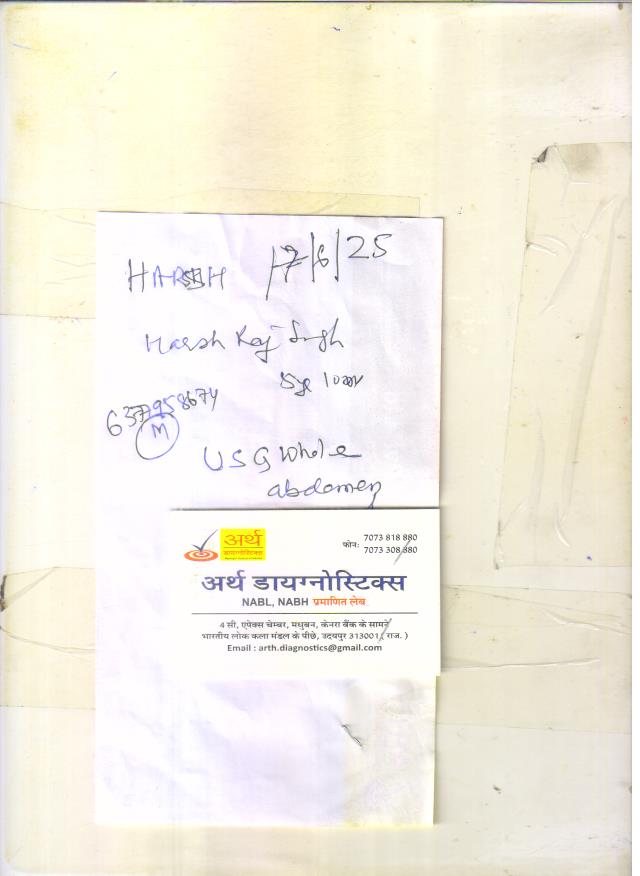 HARSH 17/6/25
Harsh Raj Singh
5yr
M
USG Whole
abdomen
अर्थ
डायग्नोस्टिक्स
फोन: 7073 818 880
7073 308 880
अर्थ डायग्नोस्टिक्स
NABL, NABH प्रमाणित लेब
4 सी, एपेक्स चेम्बर, मधुबन, केनरा बैंक के सामने
भारतीय लोक कला मंडल के पीछे, उदयपुर 313001 ( राज. )
Email : arth.diagnostics@gmail.com